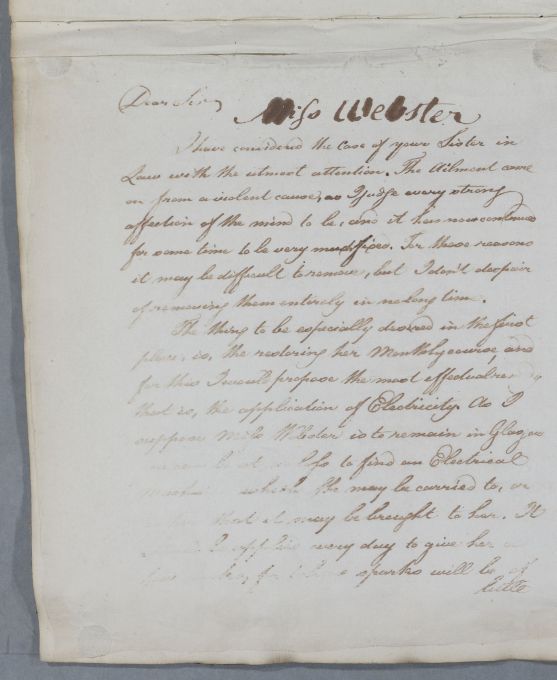 Dear Sir
Miss Webster
I have considered the case of your Sister in
Law with the utmost attention. The Ailment came
on from a violent cause, as I judge every strong
affection of the mind to be, and it has now continued
for some time to be very much fixed. For these reasons
it may be difficult to remove, but I don't despair
of removing them entirely in no long time.
The thing to be especially desired in the first
place, is, the restoring her Monthly course, and
for this I would propose the most effectual
that is, the application of Electricity. As I
suppose Miss Webster is to remain in Glasgow
to find an Electrical
which she may be carried to, or
that it may be brought to her. It
every day to give her
sparks will be of
little